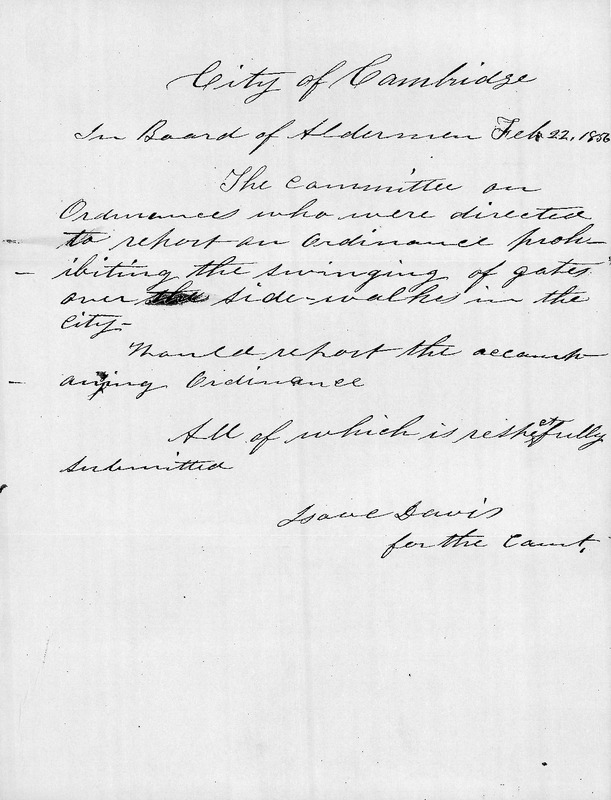 City of Cambridge
In Board of Aldermen Feb 22, 1856
The committee on
Ordinances who were directed
to report an Ordinance proh-
ibiting the swinging of gates
over side-walks in the
City-
Would report the accomp-
anying Ordinance
All of which is respectfully
submitted
Isaac Davis
for the Comt.